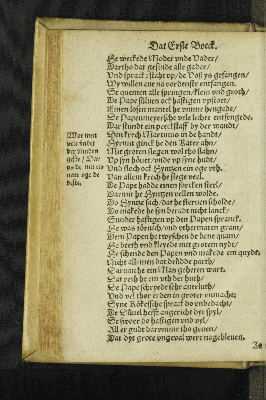 Dat Erste Boeck.
He weckede Moder unde Vader/
Dartho dat gesinde alle gader/
Und sprack: stahr up/ de Voß ys gefangen/
Wy willen ene na vordenste entfangen.
Se quemen alle springen/ klein und groth/
De Pape sülven ock hastigen upstoet/
Einen losen mantel he umme hengede/
De Papenmeyersche vele lichte entfengede.
Dar stundt ein peeckstaff by der wandt/
Den kreech Martinus in de handt/
Hyrmit ginck he den Kater ahn/
Mit groten slegen wol tho slahn/
Up syn hövet/ unde up syne hudt/
Und sloch ock Hyntzen ein oge uth.
Van allen kreech he slege veel.
De Pape hadde einen forcken steel/
Darmit he Hyntzen vellen wolde.
Do Hyntze sach/ dat he sterven scholde/
Do makede he syn beradt nicht lanck/
Sunder hastigen up den Papen spranck.
He was törnich/ und vthermaten gram/
Dem Papen he twyschen de bene quam/
He beeth und kleyede mit grotem nydt/
He schende den Papen und makede em quydt
Nicht all/ men dat drüdde parth/
Darvan he ein Man geheten warth.
Dat reth he em uth der huth/
De Pape schryede sehr averluth/
Und vel thor erden in groter unmacht:
Syne Kökesche sprack do unbedacht/
De Düvel hefft angericht dyt spyl/
Se swoer do hastigen und vyl/
All er gudt darumme tho geven/
Dat dyt grote ungeval were nagebleven.